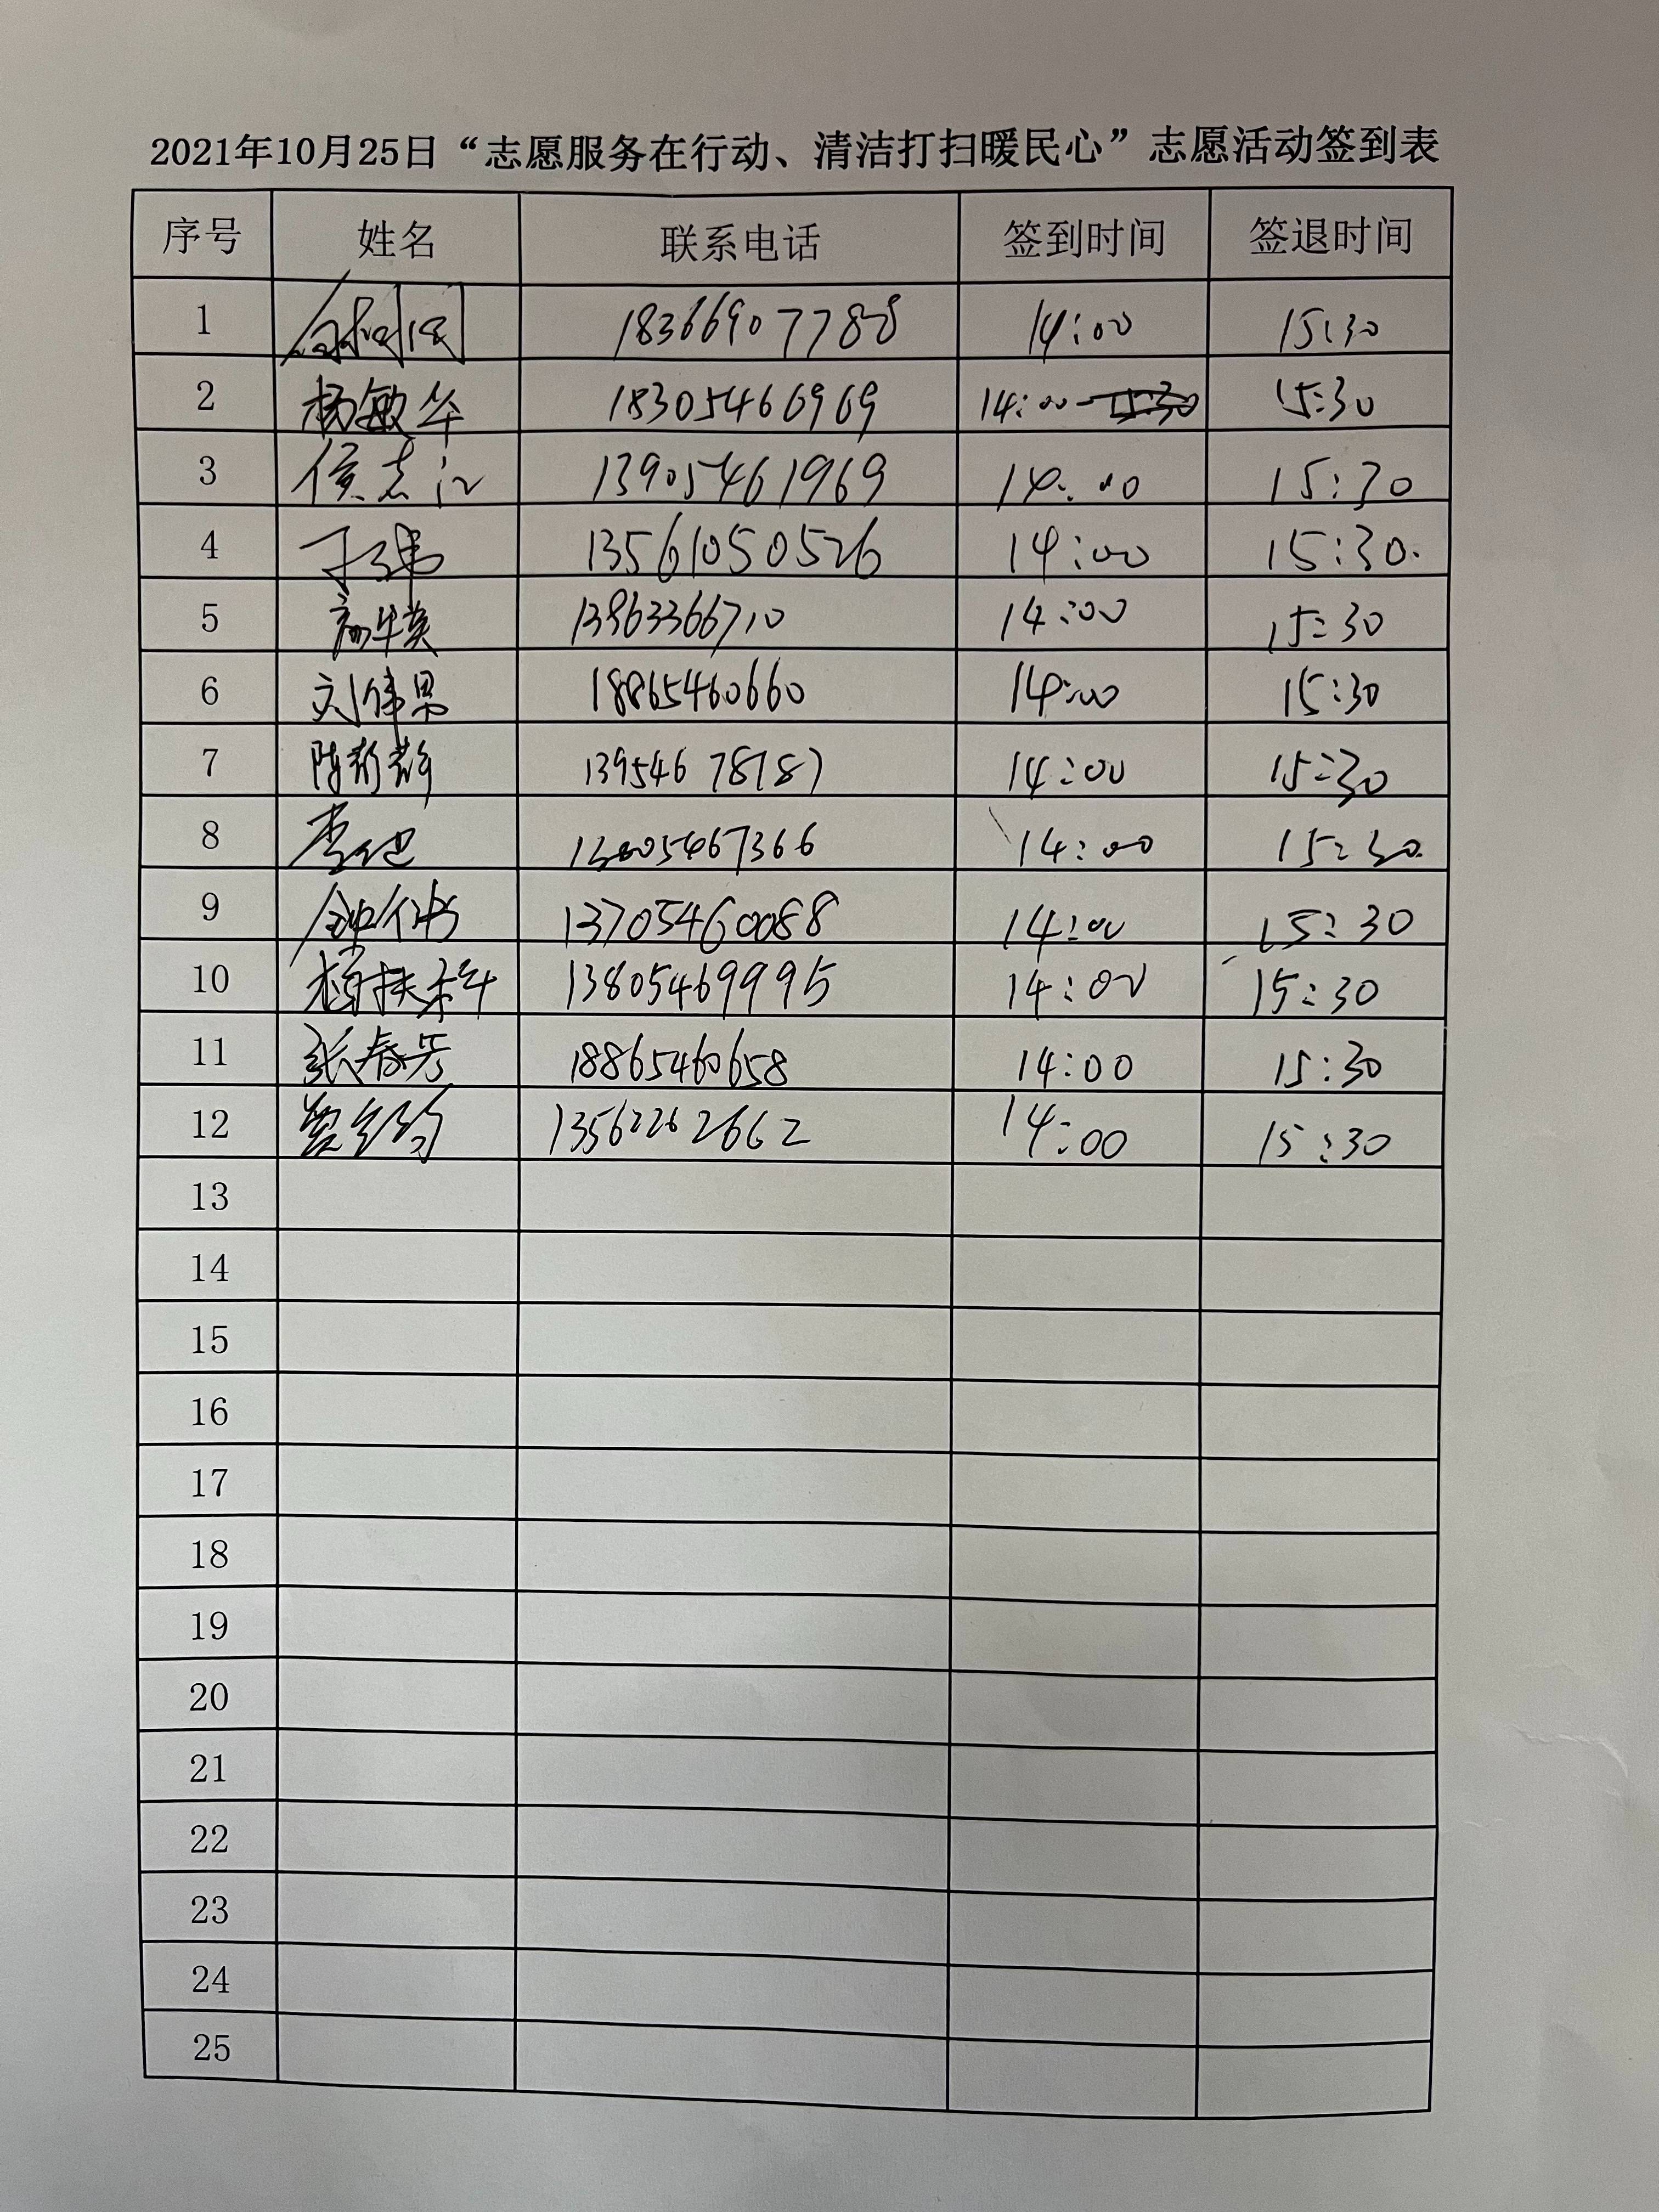 2021年10月25日“志愿服务在行动、清洁打扫暖民心”志愿活动签到表
序号 姓名 联系电话 签到时间 签退时间
1 18366907788 14:00 15:30
2 杨敏华 18305466969 14:00 15:30
3 侯志江 13905461969 14:00 15:30
4 于卫韦 13561050526 14:00 15:30.
5 13963366710 14:00 15:30
6 刘伟男 18865460660 14:00 15:30
7 陈静静 13954678787 14:00 15:30
8 李 05467366 14:00 15:30
9 钟 13705460088 14:00 15:30
10 13805469995 14:00 15:30
11 张春芳 18865460658 14:00 15:30
12 13562262662 14:00 15:30
13
14
15
16
17
18
19
20
21
22
23
24
25